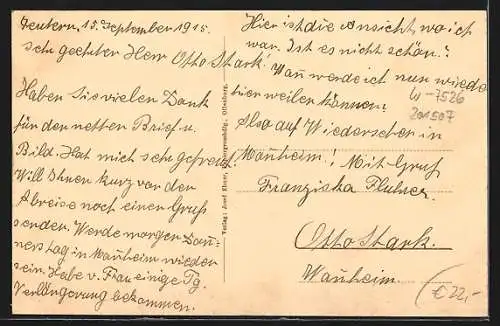 Zeutern, 15. September 1915.
Sehr geehrter Herr Otto Stark!
Haben Sie vielen Dank
für den netten Brief u.
Bild. Hat mich sehr gefreut.
Will Ihnen kurz vor der
Abreise noch einen Gruß
senden. Werde morgen Don-
nerstag in Manheim wieder
sein. Habe v. Frau einige Tg.
Verlängerung bekommen.
Hier ist die Ansicht, wo ich
war. Ist es nicht schön?
Wan werde ich nun wieder
hier weilen können?
Also auf Wiedersehen in
Manheim! Mit Gruß
Franziska
Otto Stark.
Manheim.
W-7526
201507
€22,-
Verlag: Josef Offenburg.